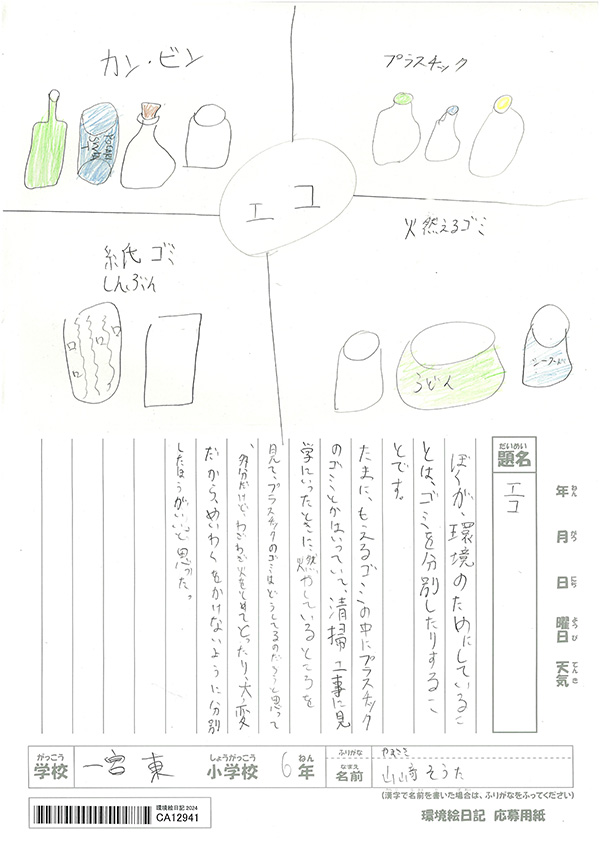 カン・ビン
プラスチック
エコ
紙ゴミ
しんぶん
火然えるゴミ
うどん
シーフード
だいめい
題名
エコ
年 ねん
月 がつ
日 にち
曜日 ようび
天気 てんき
ぼくが、環境のためにしているこ
とは、ゴミを分別したりするこ
とです。
たまに、もえるゴミの中にプラスチック
のゴミとかはいっていて、清掃工事に見
学にいったときに燃やしているところを
見て、プラスチックのゴミはどうしてるのだろうと思って
、多分だけど、わざわざ火をとめてとったり、大変
だから、めいわくをかけないように分別
したほうがいいと思った。
がっこう
学校 一宮東 しょうがっこう 小学校 6年 ねん
ふりがな やまさき
なまえ
名前 山﨑そうた
(漢字で名前を書いた場合は、ふりがなをふってください)
環境絵日記2024
CA12941
環境絵日記 応募用紙